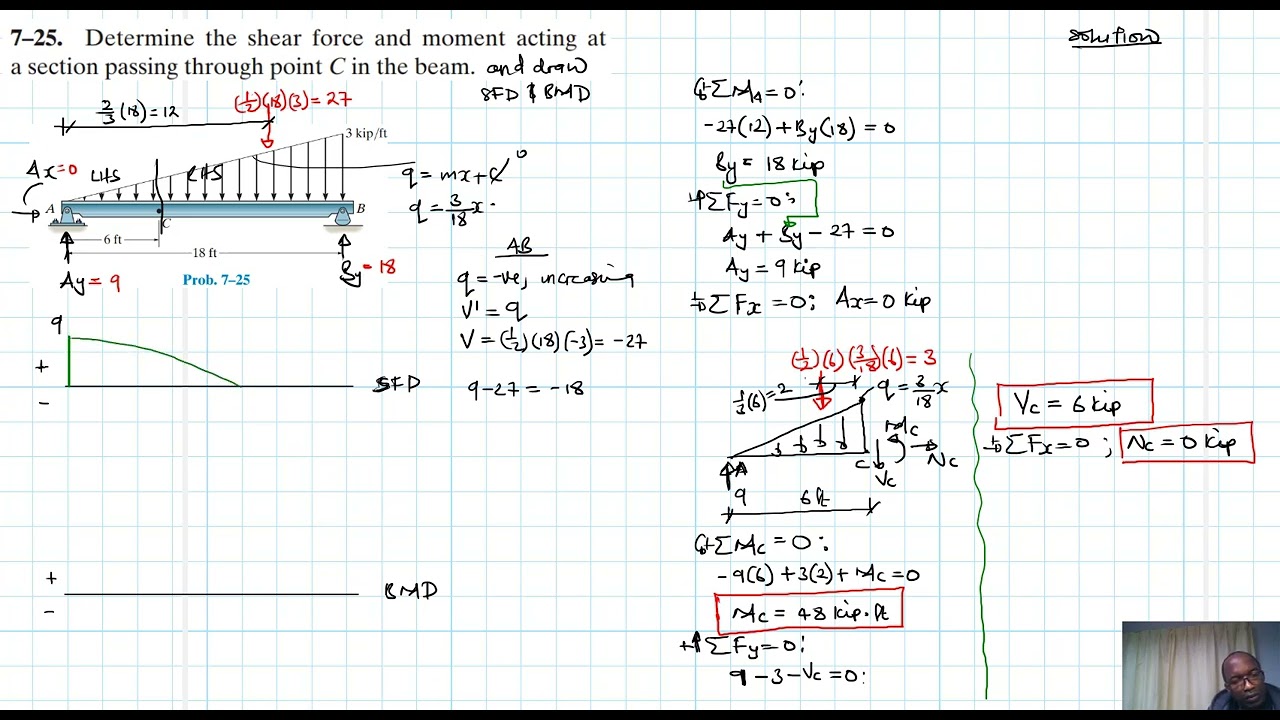 solution
7–25. Determine the shear force and moment acting at
a section passing through point C in the beam. and draw
SFD & BMD
2/3 (18) = 12
(1/2)(18)(3) = 27
3 kip/ft
Ax=0
LHS
RHS
A
B
C
6 ft
18 ft
Ay = 9
Prob. 7–25
By = 18
q = mx + c 0
q = 3/18 x
AB
q = -ve, increasing
V' = q
V = (1/2)(18)(-3) = -27
9 - 27 = -18
9
+
-
SFD
+
-
BMD
↺+ΣMA = 0:
-27(12) + By(18) = 0
By = 18 kip
+↑ΣFy = 0:
Ay + By - 27 = 0
Ay = 9 kip
+→ΣFx = 0: Ax = 0 kip
(1/2)(6)(3/18)(6) = 3
1/3(6) = 2
q = 3/18 x
Mc
Nc
Vc
A
C
9
6 ft
↺+ΣMc = 0:
-9(6) + 3(2) + Mc = 0
Mc = 48 kip·ft
+↑ΣFy = 0:
9 - 3 - Vc = 0:
Vc = 6 kip
+→ΣFx = 0; Nc = 0 kip